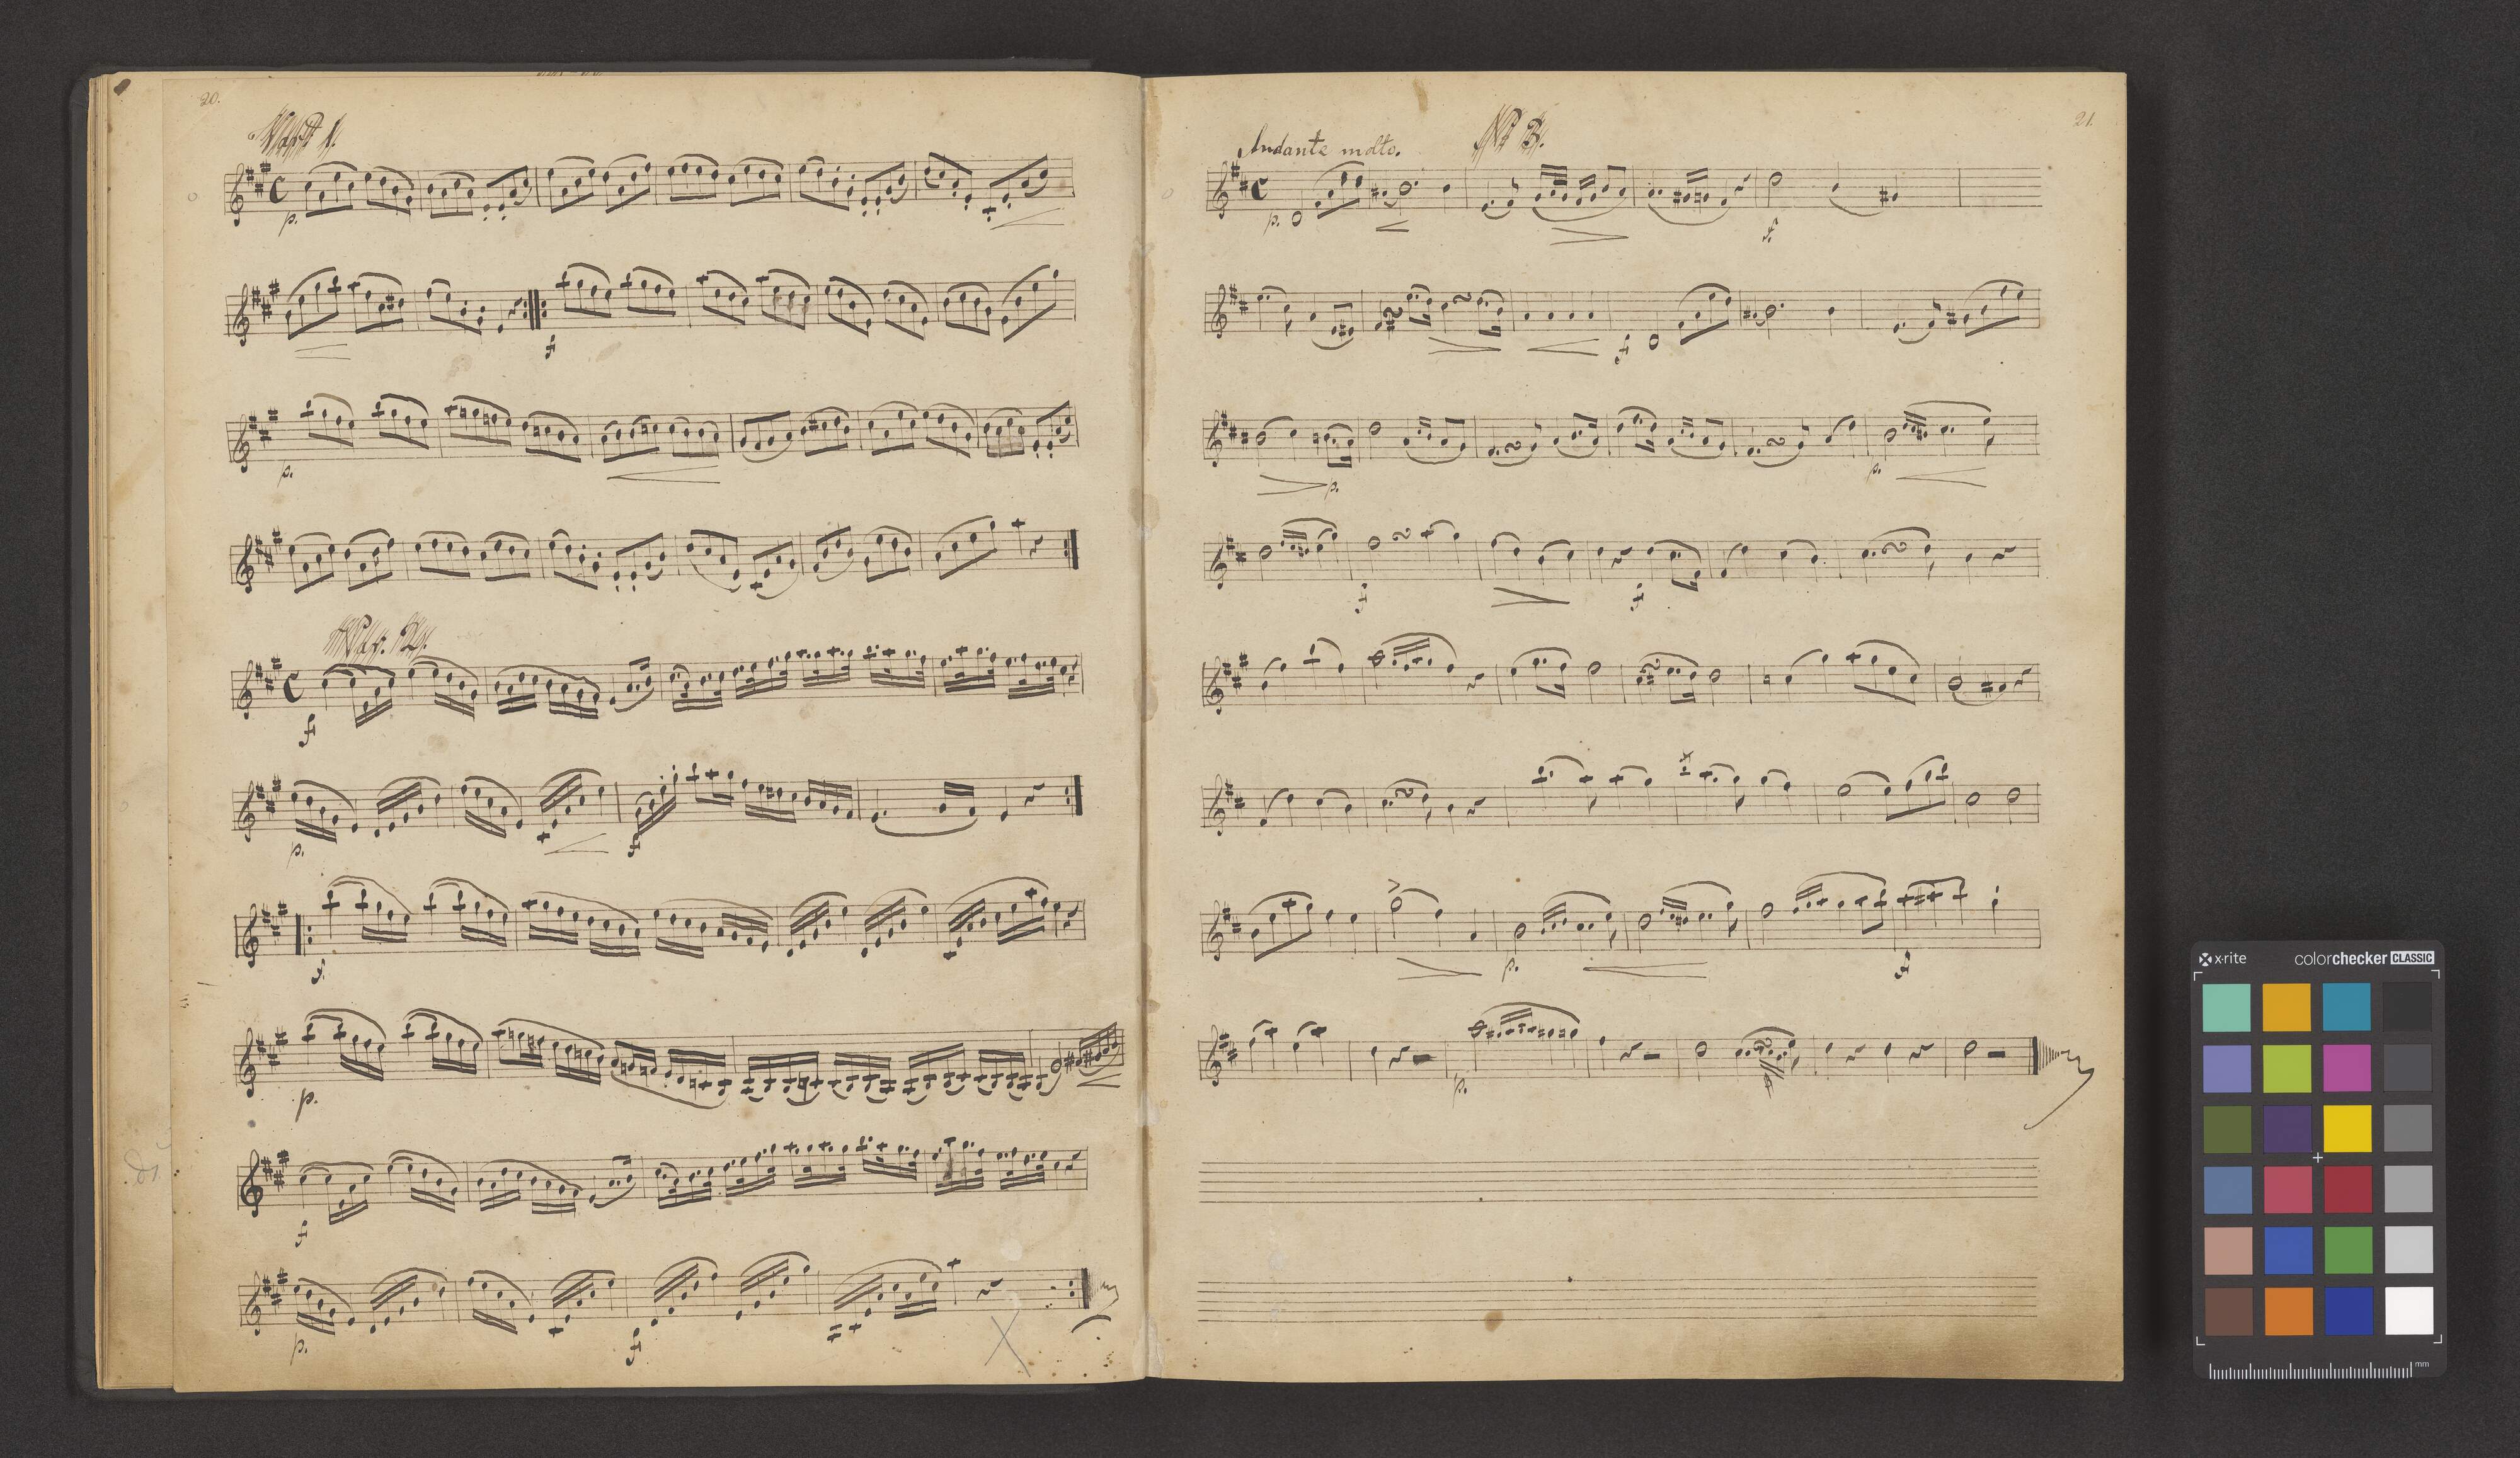 20.
Var. 1.
p.
f
p.
Var. 2.
f
p.
f
f.
p.
f
p.
f
21.
Andante molto.
№ 3.
p.
f.
f
p.
p.
f
f
p.
f
p.
x·rite
colorchecker CLASSIC
mm